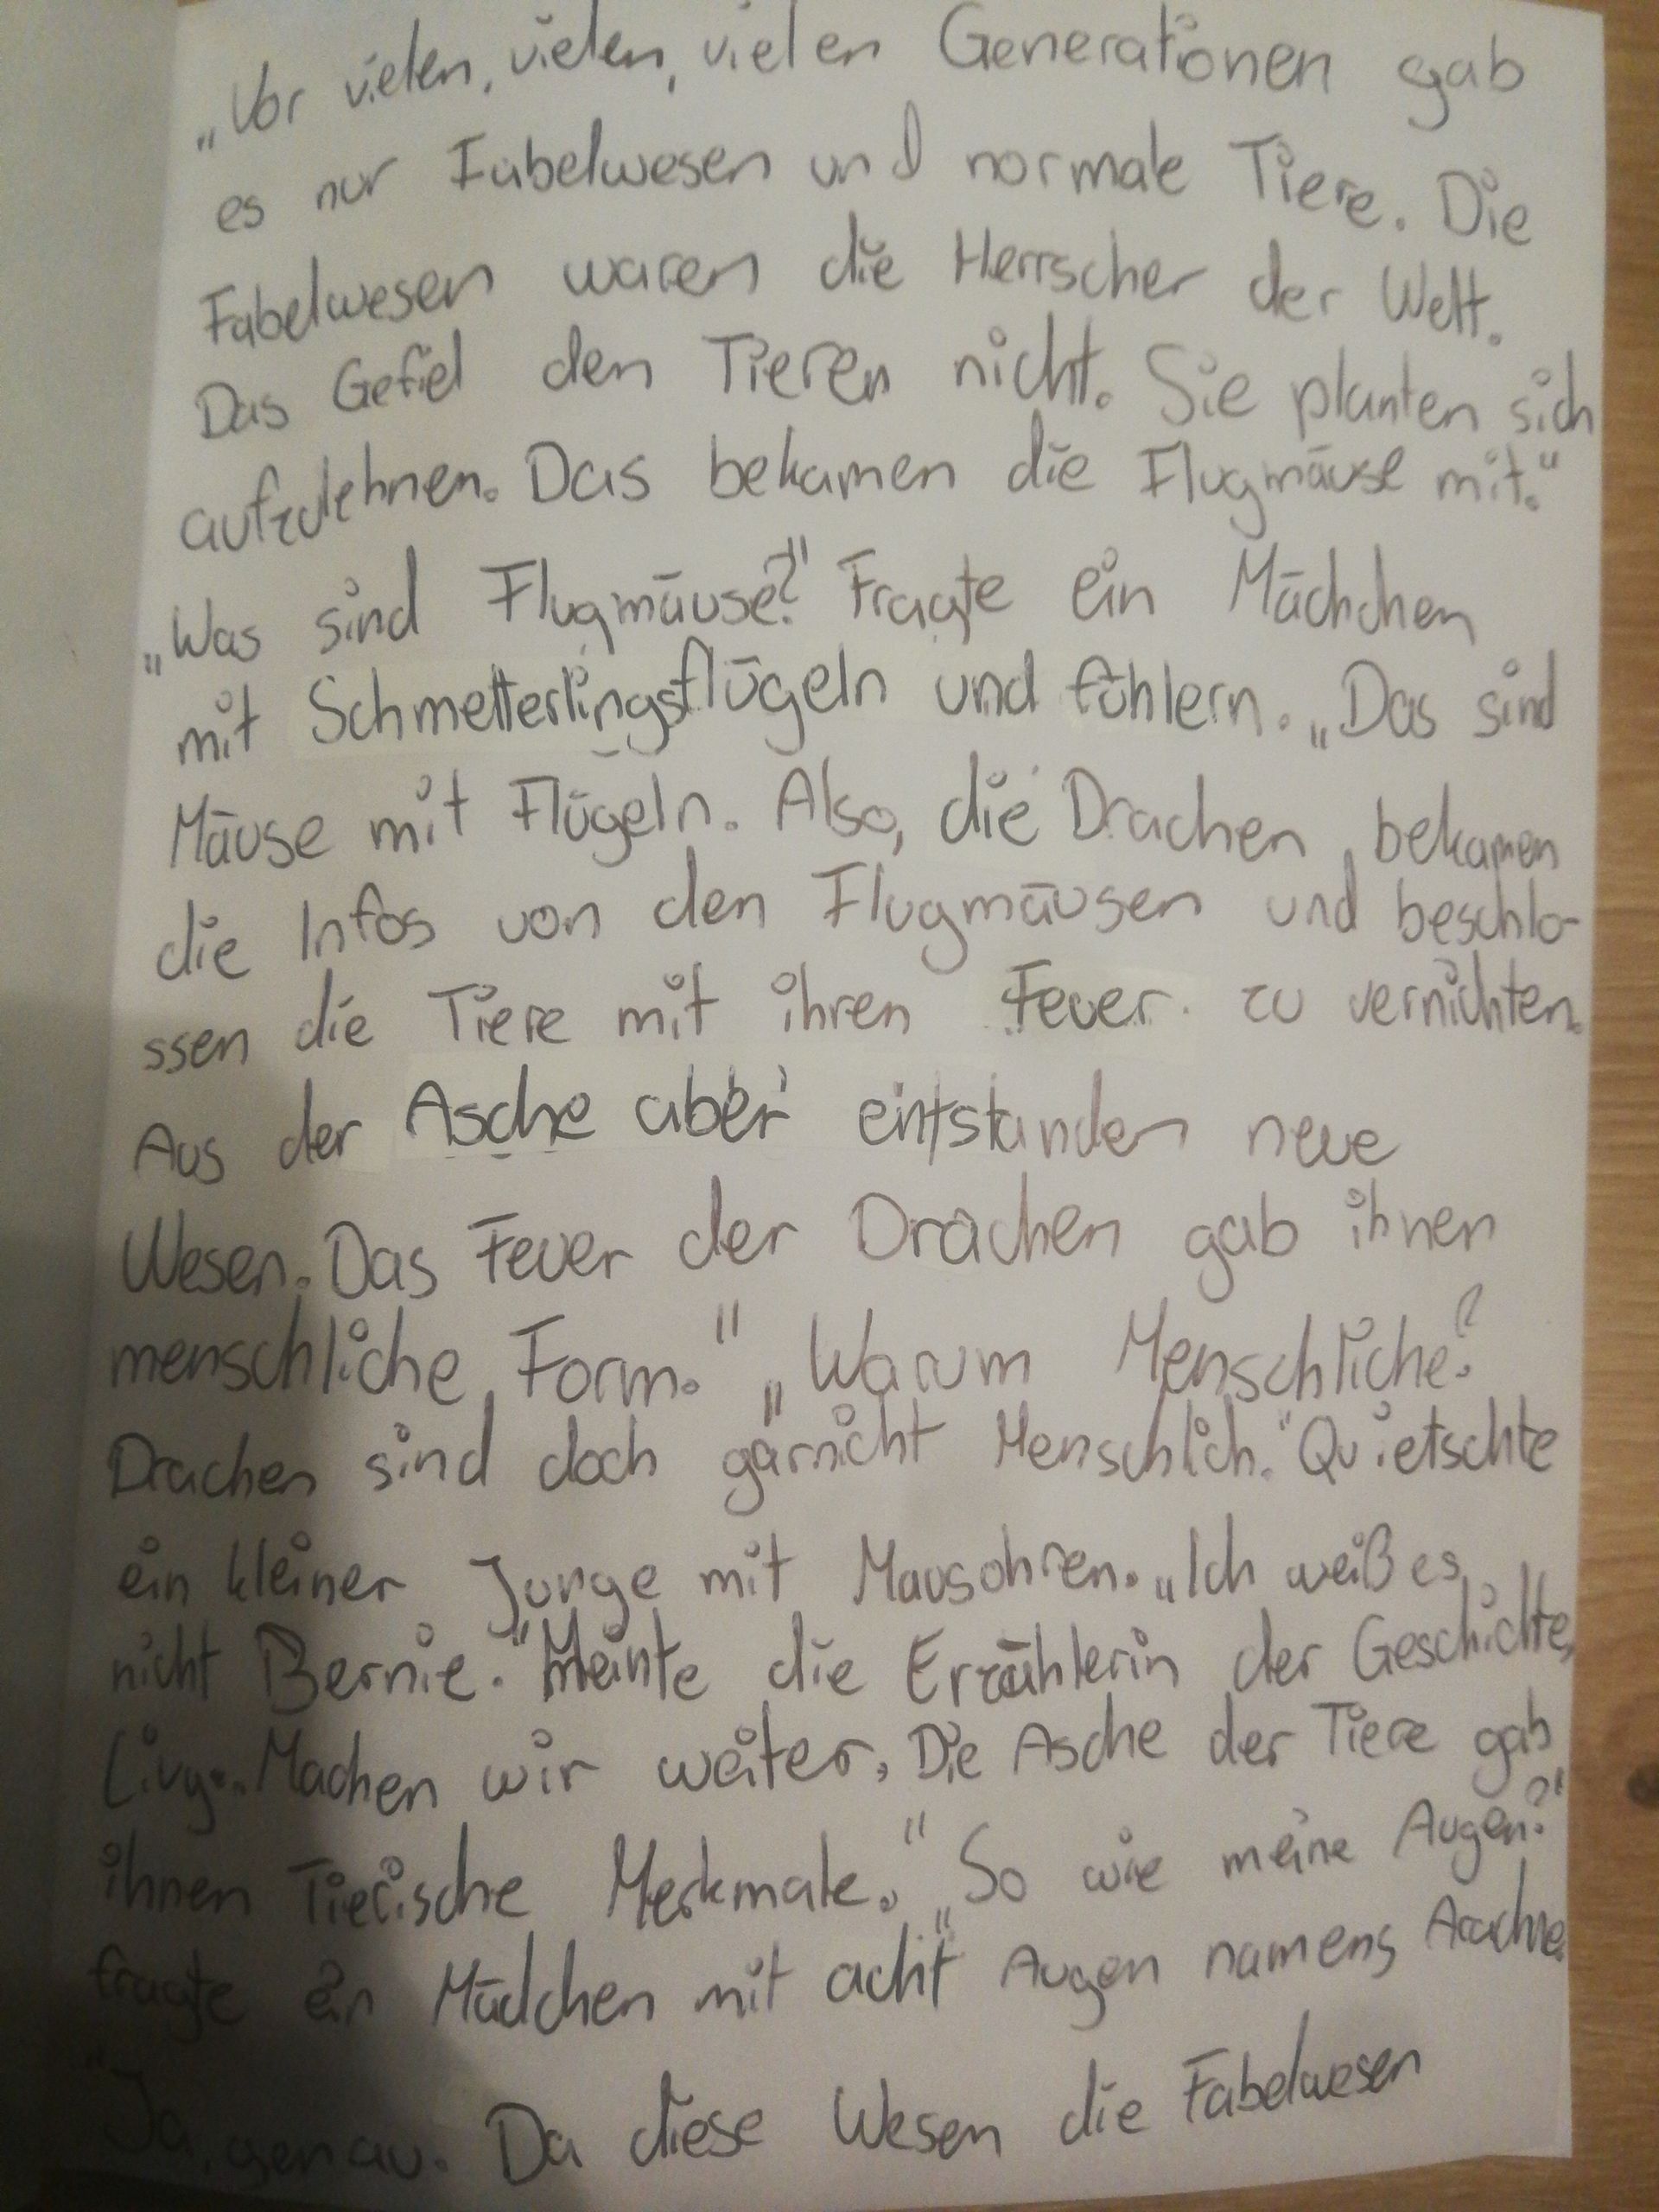 „Vor vielen, vielen, vielen Generationen gab
es nur Fabelwesen und normale Tiere. Die
Fabelwesen waren die Herrscher der Welt.
Das Gefiel den Tieren nicht. Sie planten sich
aufzulehnen. Das bekamen die Flugmäuse mit."
„Was sind Flugmäuse?" Fragte ein Mächchen
mit Schmetterlingsflügeln und fühlern. „Das sind
Mäuse mit Flügeln. Also, die Drachen bekamen
die Infos von den Flugmäusen und beschlo-
ssen die Tiere mit ihren Feuer zu vernichten.
Aus der Asche aber entstanden neue
Wesen. Das Feuer der Drachen gab ihnen
menschliche Form." „Warum Menschliche?
Drachen sind doch garnicht Menschlich." Quietschte
ein kleiner Junge mit Mausohren. „Ich weiß es
nicht Bernie." Meinte die Erzählerin der Geschichte,
Livy. „Machen wir weiter. Die Asche der Tiere gab
ihnen Tierische Merkmale." „So wie meine Augen?"
fragte ein Mädchen mit acht Augen namens Arachne.
"Ja, genau. Da diese Wesen die Fabelwesen